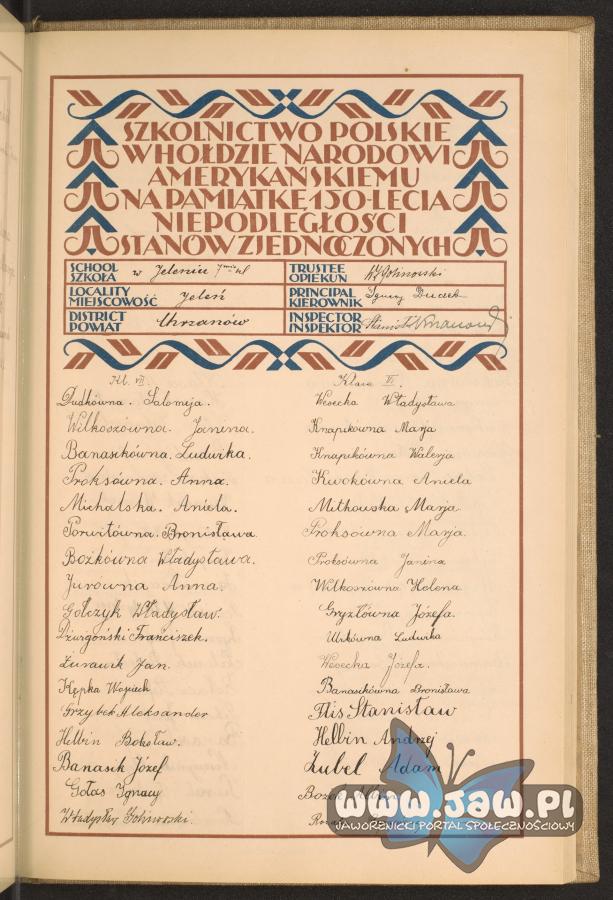 SZKOLNICTWO POLSKIE
W HOŁDZIE NARODOWI
AMERYKAŃSKIEMU
NA PAMIĄTKĘ 150-LECIA
NIEPODLEGŁOŚCI
STANÓW ZJEDNOCZONYCH
SCHOOL
SZKOŁA
w Jeleniu 7mio kl
TRUSTEE
OPIEKUN
LOCALITY
MIEJSCOWOŚĆ
Jeleń
PRINCIPAL
KIEROWNIK
Ignacy
DISTRICT
POWIAT
Chrzanów
INSPECTOR
INSPEKTOR
Stanisław
Kl. VII.
Dudkówna. Salomeja.
Wilkoszówna. Janina.
Banasikówna. Ludwika.
Proksówna. Anna.
Michalska. Aniela.
Porwitówna. Bronisława
Bożkówna Władysława.
Jurówna Anna.
Gołczyk Władysław.
Dżurgoński Franciszek.
Żurawik Jan.
Kępka Wojciech
Grzybek Aleksander
Helbin Bolesław.
Banasik Józef
Gołas Ignacy
Władysław
Klasa VI.
Wesecka Władysława
Knapikówna Marja
Knapikówna Walerja
Kwokówna Aniela
Mitkowska Marja.
Proksówna Marja.
Proksówna Janina
Wilkoszówna Helena
Gryzłówna Józefa.
Urkówna Ludwika
Wesecka Józefa.
Banasikówna Bronisława
Flis Stanisław
Helbin Andrzej
Żubel Adam
www.jaw.pl
JAWORZNICKI PORTAL SPOŁECZNOŚCIOWY